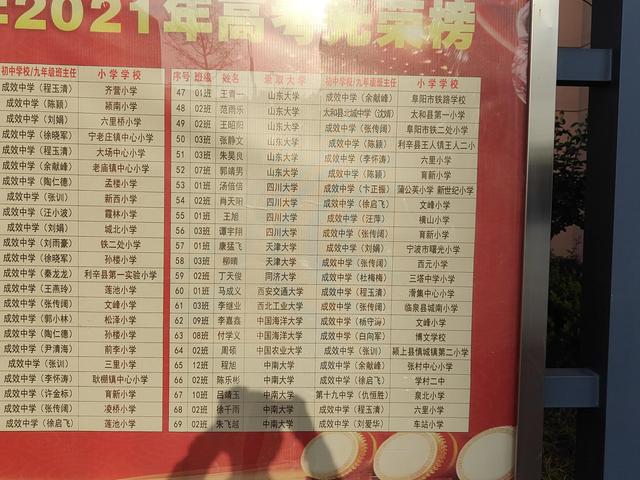 2021年高考光荣榜
初中学校/九年级班主任 小学学校
成效中学（程玉清） 齐营小学
成效中学（陈颖） 颍南小学
成效中学（刘娟） 六里桥小学
成效中学（徐晓军） 宁老庄镇中心小学
成效中学（程玉清） 大场中心小学
成效中学（余献峰） 老庙镇中心小学
成效中学（陶仁德） 孟楼小学
成效中学（张训） 新西小学
成效中学（汪小波） 霞林小学
成效中学（刘娟） 城北小学
成效中学（刘雨豪） 铁二处小学
成效中学（徐晓军） 孙楼小学
成效中学（秦龙龙） 利辛县第一实验小学
成效中学（王燕玲） 莲池小学
成效中学（张传阔） 文峰小学
成效中学（郭小林） 松泽小学
成效中学（陶仁德） 孙楼小学
成效中学（尹清海） 前李小学
成效中学（张训） 三里小学
成效中学（李怀涛） 耿棚镇中心小学
成效中学（许金标） 育新小学
成效中学（张传阔） 凌桥小学
成效中学（徐启飞） 莲池小学
序号 班级 姓名 录取大学 初中学校/九年级班主任 小学学校
47 01班 王青一 山东大学 成效中学（余献峰） 阜阳市铁路学校
48 02班 范雨乐 山东大学 太和县北城中学（沈婧） 太和县第一小学
49 02班 王昭阳 山东大学 成效中学（张传阔） 阜阳市铁二处小学
50 03班 张静文 山东大学 成效中学（陈颖） 利辛县王人镇王人二小
51 03班 朱昊良 山东大学 成效中学（李怀涛） 六里小学
52 07班 郭靖男 山东大学 成效中学（陈颖） 育新小学
53 01班 汤倍倍 四川大学 成效中学（卞正振） 蒲公英小学 新世纪小学
54 02班 肖天阳 四川大学 成效中学（徐启飞） 文峰小学
55 01班 王旭 四川大学 成效中学（汪萍） 横山小学
56 03班 谭宇翔 四川大学 成效中学（张传阔） 育新小学
57 01班 康猛飞 天津大学 成效中学（刘娟） 宁波市曙光小学
58 03班 柳晴 天津大学 成效中学（张传阔） 西元小学
59 02班 丁天俊 同济大学 成效中学（杜梅梅） 三塔中学小学
60 01班 马成义 西安交通大学 成效中学（程玉清） 滑集中心小学
61 03班 李继业 西北工业大学 成效中学（张传阔） 临泉县城南小学
62 09班 李嘉鑫 中国海洋大学 成效中学（杨守涛） 文峰小学
63 08班 付学义 中国海洋大学 成效中学（白向军） 博文学校
64 02班 周硕 中国农业大学 成效中学（张训） 颍上县慎城镇第二小学
65 12班 程旭 中南大学 成效中学（余献峰） 张村中心小学
66 02班 陈乐彬 中南大学 成效中学（徐启飞） 学村二中
67 10班 吕靖玉 中南大学 第十九中学（仇恒胜） 泉北小学
68 02班 徐千雨 中南大学 成效中学（程玉清） 六里小学
69 02班 朱飞越 中南大学 成效中学（刘爱华） 车站小学